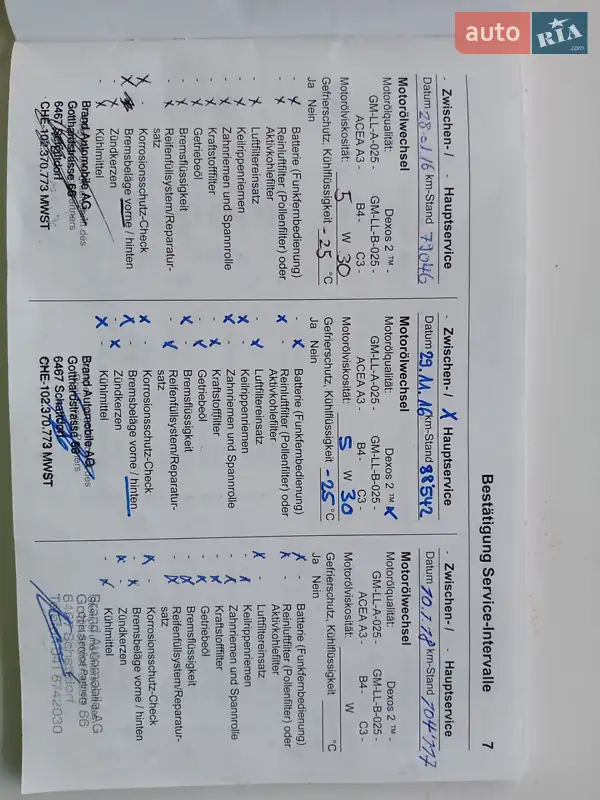 auto RIA .com
Bestätigung Service-Intervalle 7
- Zwischen- / - Hauptservice
Datum 28-01-16 km-Stand 79046
Motorölwechsel
Motorölqualität: Dexos 2 ™ -
GM-LL-A-025 - GM-LL-B-025 -
ACEA A3 - B4 - C3 -
Motorölviskosität: 5 W 30
Gefrierschutz, Kühlflüssigkeit -25 °C
Ja Nein
- x Batterie (Funkfernbedienung)
- x Reinluftfilter (Pollenfilter) oder
Aktivkohlefilter
- x Luftfiltereinsatz
- x Keilrippenriemen
- x Zahnriemen und Spannrolle
- x Kraftstofffilter
- x Getriebeöl
- x Bremsflüssigkeit
- x Reifenfüllsystem/Reparatur-
satz
x - Korrosionsschutz-Check
x Bremsbeläge vorne / hinten
- x Zündkerzen
- x Kühlmittel
Brand Automobile AG
Gotthardstrasse 66
6467 Schattdorf
CHE-102.370.773 MWST
- Zwischen- / x Hauptservice
Datum 29.11.16 km-Stand 88542
Motorölwechsel
Motorölqualität: Dexos 2 ™ x
GM-LL-A-025 - GM-LL-B-025 -
ACEA A3 - B4 - C3 -
Motorölviskosität: 5 W 30
Gefrierschutz, Kühlflüssigkeit -25 °C
Ja Nein
- x Batterie (Funkfernbedienung)
x - Reinluftfilter (Pollenfilter) oder
Aktivkohlefilter
- x Luftfiltereinsatz
x - Keilrippenriemen
x - Zahnriemen und Spannrolle
- x Kraftstofffilter
- x Getriebeöl
x - Bremsflüssigkeit
- x Reifenfüllsystem/Reparatur-
satz
x - Korrosionsschutz-Check
x - Bremsbeläge vorne / hinten
- x Zündkerzen
x - Kühlmittel
Brand Automobile AG
Gotthardstrasse 66
6467 Schattdorf
CHE-102.370.773 MWST
- Zwischen- / - Hauptservice
Datum 10.1.18 km-Stand 104'777
Motorölwechsel
Motorölqualität: Dexos 2 ™ -
GM-LL-A-025 - GM-LL-B-025 -
ACEA A3 - B4 - C3 -
Motorölviskosität: W
Gefrierschutz, Kühlflüssigkeit °C
Ja Nein
x - Batterie (Funkfernbedienung)
x - Reinluftfilter (Pollenfilter) oder
Aktivkohlefilter
x - Luftfiltereinsatz
- x Keilrippenriemen
- x Zahnriemen und Spannrolle
- x Kraftstofffilter
- x Getriebeöl
- x Bremsflüssigkeit
- x Reifenfüllsystem/Reparatur-
satz
x - Korrosionsschutz-Check
- x Bremsbeläge vorne / hinten
x - Zündkerzen
- x Kühlmittel
Brand Automobile AG
66
6467 Schattdorf
8742030